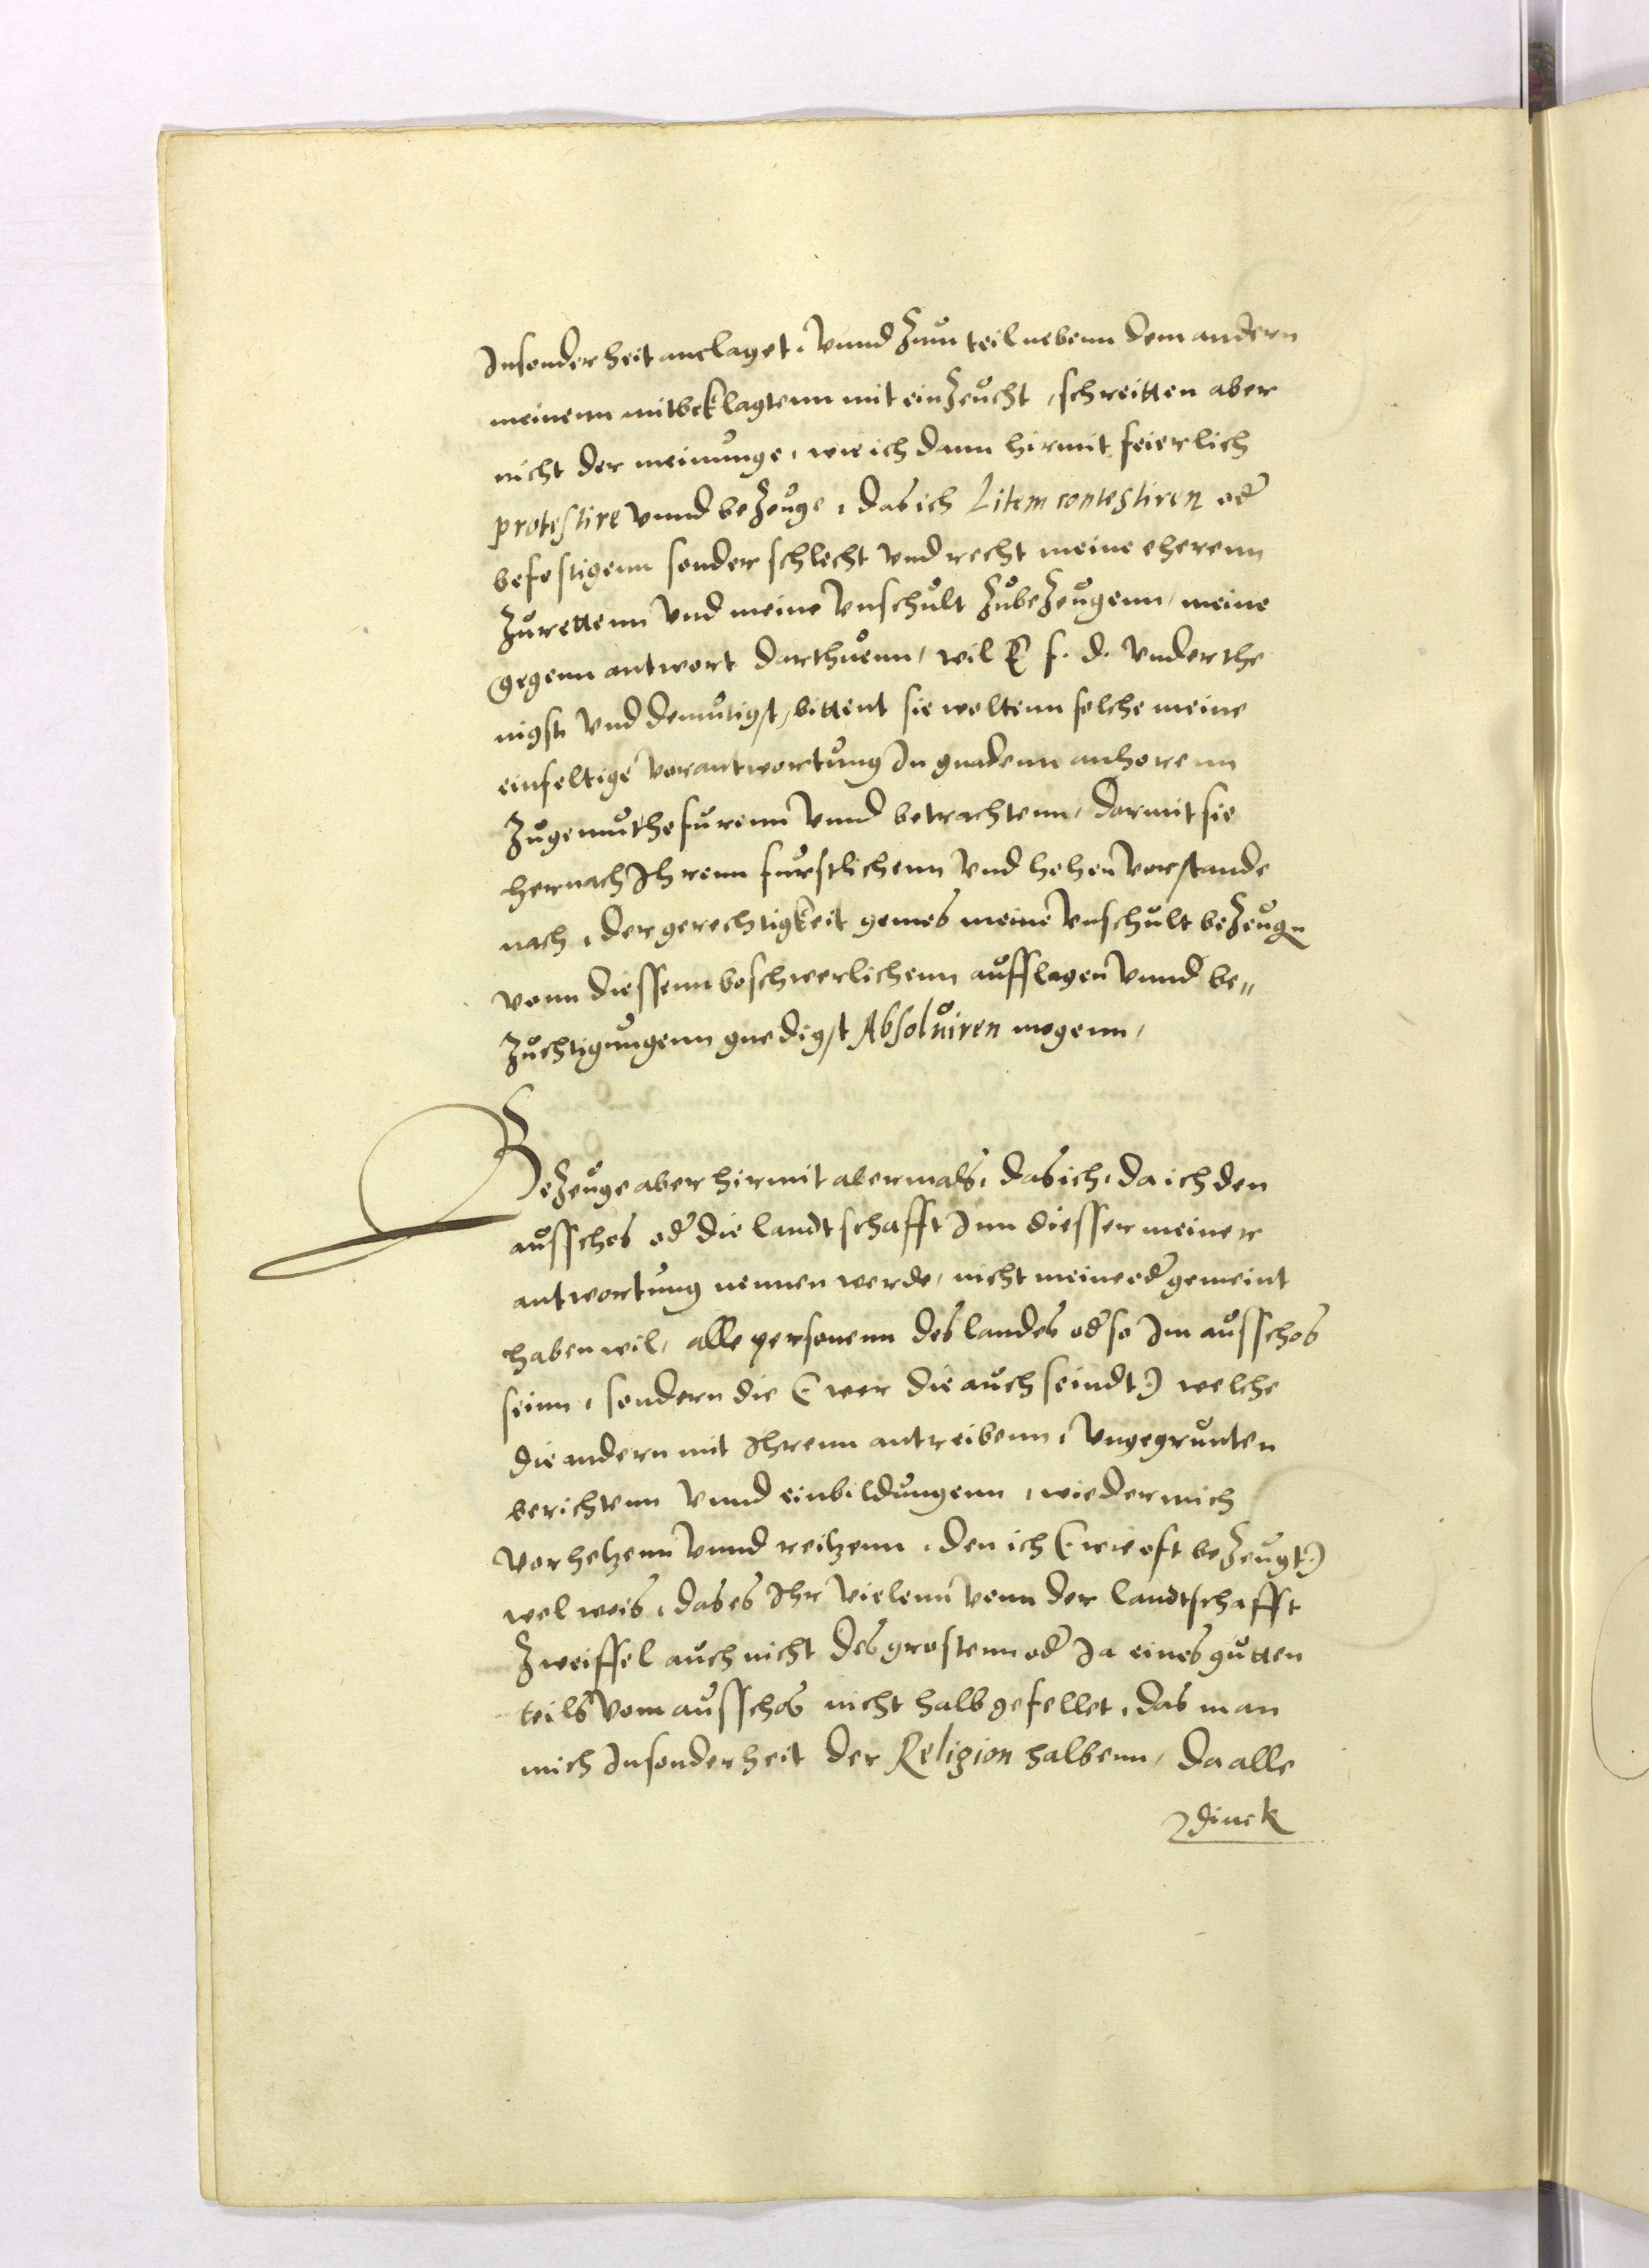 Insonderheit anclaget, vnnd zum teil nebenn dem andern
meinenn mitbeklagtenn mit einzeucht, schreitten aber
nicht der meinunge, wie ich dann hirmit feierlich
protestire vnnd bezeuge, das ich Litem contestiren oder
befestigenn sonder schlecht vnd recht meine eherenn
zurettenn vnd meine vnschult zubezeugenn, meine
gegenn antwort darthuenn, wil E f. d. vnderthe
nigst vnd demutigst, bittent sie woltenn solche meine
einfeltige vorantwortung In gnadenn anhorenn
zugemuthe furenn vnnd betrachtenn, darmit sie
hernach Ihrenn furstlichenn vnd hohen vorstande
nach, der gerechtigkeit gemes meine vnschult bezeugen
vonn diessenn beschwerlichenn aufflagen vnnd be„
zuchtigungenn gnedigst Absoluiren mogenn,
Bezeuge aber hirmit abermals, das ich, da ich den
ausschos oder die landtschafft Inn diesser meiner
antwortung nennen werde, nicht meine oder gemeint
haben wil, alle personenn des landes oder so Im ausschos
seinn, sondern die (: wer die auch seindt :) welche
die andern mit Ihrenn antreibenn, vngegrunten
berichtenn vnnd einbildungenn, wieder mich
vorhetzenn vnnd reitzenn, den ich (: wie oft bezeugt :)
wol weis, das es Ihr vielenn vonn der landtschafft
zweiffel auch nicht des grostenn oder Ja eines gutten
teils vom ausschos nicht halb gefellet, das man
mich Insonderheit der Religion halbenn, da alle
dinck